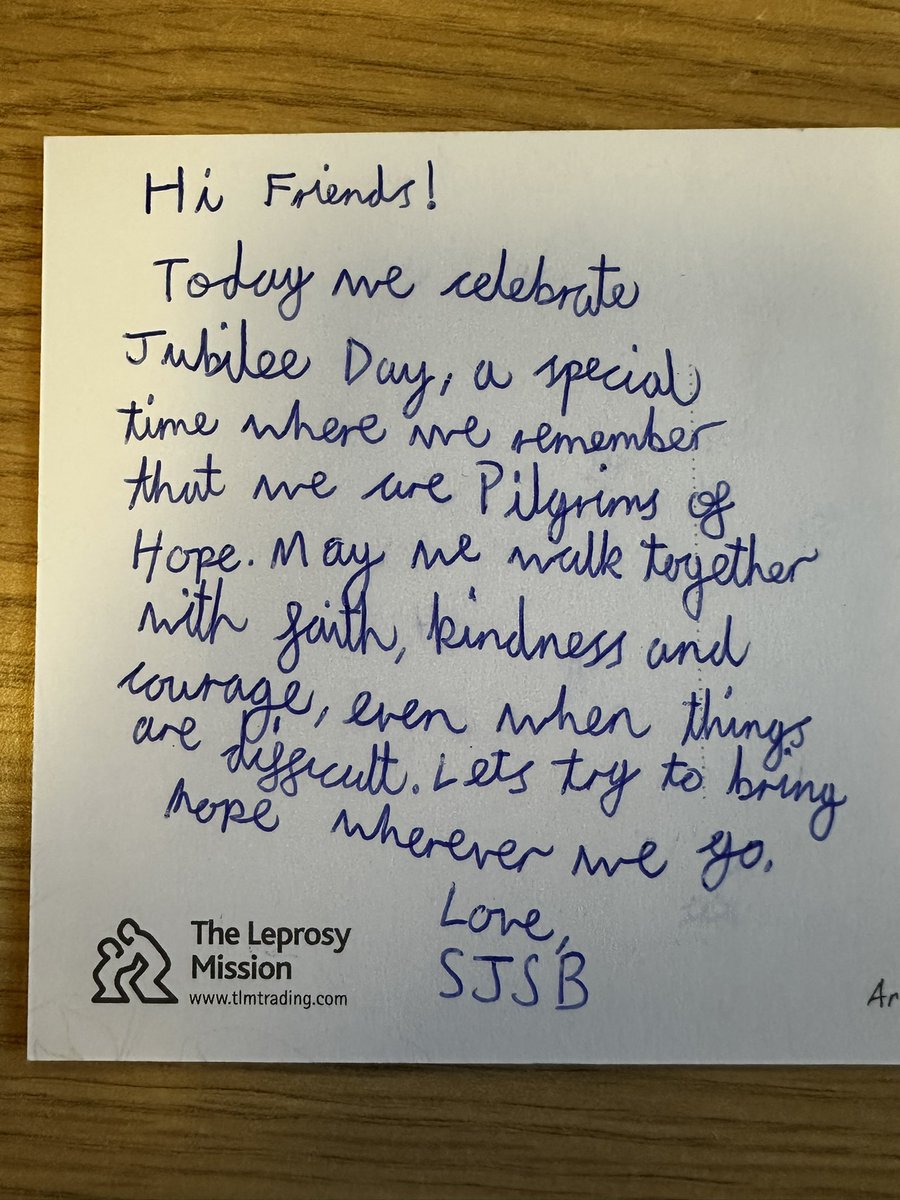 Hi Friends!
Today we celebrate
Jubilee Day, a special
time where we remember
that we are Pilgrims of
Hope. May we walk together
with faith, kindness and
courage, even when things
are difficult. Lets try to bring
hope wherever we go.
Love,
SJSB
The Leprosy
Mission
www.tlmtrading.com
Ar